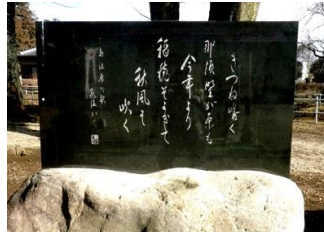 きつね鳴く
那須野が原も
今年より
稲穂そよぎて
秋風そ
吹く